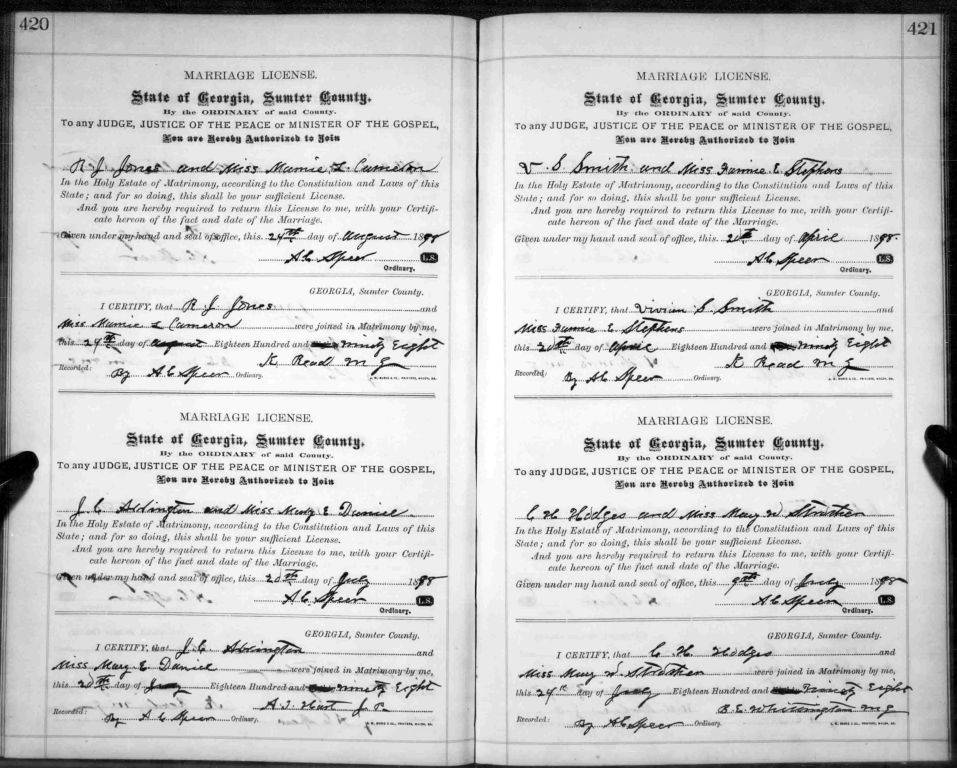 420
MARRIAGE LICENSE.
State of Georgia, Sumter County.
By the ORDINARY of said County.
To any JUDGE, JUSTICE OF THE PEACE or MINISTER OF THE GOSPEL,
You are Hereby Authorized to Join
R J Jones and Miss Mamie L Cameron
In the Holy Estate of Matrimony, according to the Constitution and Laws of this
State; and for so doing, this shall be your sufficient License.
And you are hereby required to return this License to me, with your Certifi-
cate hereon of the fact and date of the Marriage.
Given under my hand and seal of office, this 24th day of August 1898
A C Speer L.S.
Ordinary.
GEORGIA, Sumter County.
I CERTIFY, that R J Jones and
Miss Mamie L Cameron were joined in Matrimony by me,
this 24th day of August Eighteen Hundred and Ninety Eight
K Read M G
Recorded: By A C Speer Ordinary.
MARRIAGE LICENSE.
State of Georgia, Sumter County.
By the ORDINARY of said County.
To any JUDGE, JUSTICE OF THE PEACE or MINISTER OF THE GOSPEL,
You are Hereby Authorized to Join
J C and Miss Mary E Daniel
In the Holy Estate of Matrimony, according to the Constitution and Laws of this
State; and for so doing, this shall be your sufficient License.
And you are hereby required to return this License to me, with your Certifi-
cate hereon of the fact and date of the Marriage.
Given under my hand and seal of office, this 20th day of July 1898
A C Speer L.S.
Ordinary.
GEORGIA, Sumter County.
I CERTIFY, that J. C. and
Miss Mary E Daniel were joined in Matrimony by me,
this 20th day of July Eighteen Hundred and Ninety Eight
A J Hart J. P.
Recorded: By A C Speer Ordinary.
421
MARRIAGE LICENSE.
State of Georgia, Sumter County.
By the ORDINARY of said County.
To any JUDGE, JUSTICE OF THE PEACE or MINISTER OF THE GOSPEL,
You are Hereby Authorized to Join
V S Smith and Miss Fannie E Stephens
In the Holy Estate of Matrimony, according to the Constitution and Laws of this
State; and for so doing, this shall be your sufficient License.
And you are hereby required to return this License to me, with your Certifi-
cate hereon of the fact and date of the Marriage.
Given under my hand and seal of office, this day of April 1898.
A C Speer L.S.
Ordinary.
GEORGIA, Sumter County.
I CERTIFY, that Vivian S. Smith and
Miss Fannie E. Stephens were joined in Matrimony by me,
this 20th day of April Eighteen Hundred and Ninety Eight
K Read M G
Recorded: By A C Speer Ordinary.
MARRIAGE LICENSE.
State of Georgia, Sumter County.
By the ORDINARY of said County.
To any JUDGE, JUSTICE OF THE PEACE or MINISTER OF THE GOSPEL,
You are Hereby Authorized to Join
C H Hodges and Miss Mary W Strother
In the Holy Estate of Matrimony, according to the Constitution and Laws of this
State; and for so doing, this shall be your sufficient License.
And you are hereby required to return this License to me, with your Certifi-
cate hereon of the fact and date of the Marriage.
Given under my hand and seal of office, this 9th day of July 1898
A C Speer L.S.
Ordinary.
GEORGIA, Sumter County.
I CERTIFY, that C. H. Hodges and
Miss Mary W Strother were joined in Matrimony by me,
this 24th day of July Eighteen Hundred and Ninety Eight
B. E. Whittington M G
Recorded: By A C Speer Ordinary.